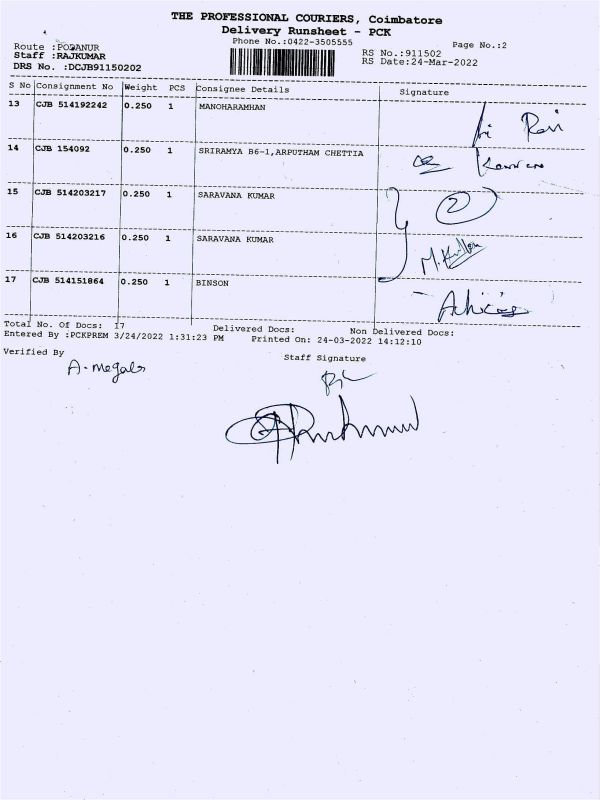 THE PROFESSIONAL COURIERS, Coimbatore
Delivery Runsheet - PCK
Phone No.:0422-3505555
Page No.:2
Route :PODANUR
Staff :RAJKUMAR
DRS No. :DCJB91150202
RS No.:911502
RS Date:24-Mar-2022
S No Consignment No Weight PCS Consignee Details Signature
13 CJB 514192242 0.250 1 MANOHARAMHAN
Ravi
14 CJB 154092 0.250 1 SRIRAMYA B6-1,ARPUTHAM CHETTIA
15 CJB 514203217 0.250 1 SARAVANA KUMAR
2
16 CJB 514203216 0.250 1 SARAVANA KUMAR
17 CJB 514151864 0.250 1 BINSON
Total No. Of Docs: 17 Delivered Docs: Non Delivered Docs:
Entered By :PCKPREM 3/24/2022 1:31:23 PM Printed On: 24-03-2022 14:12:10
Verified By Staff Signature
A. Megala